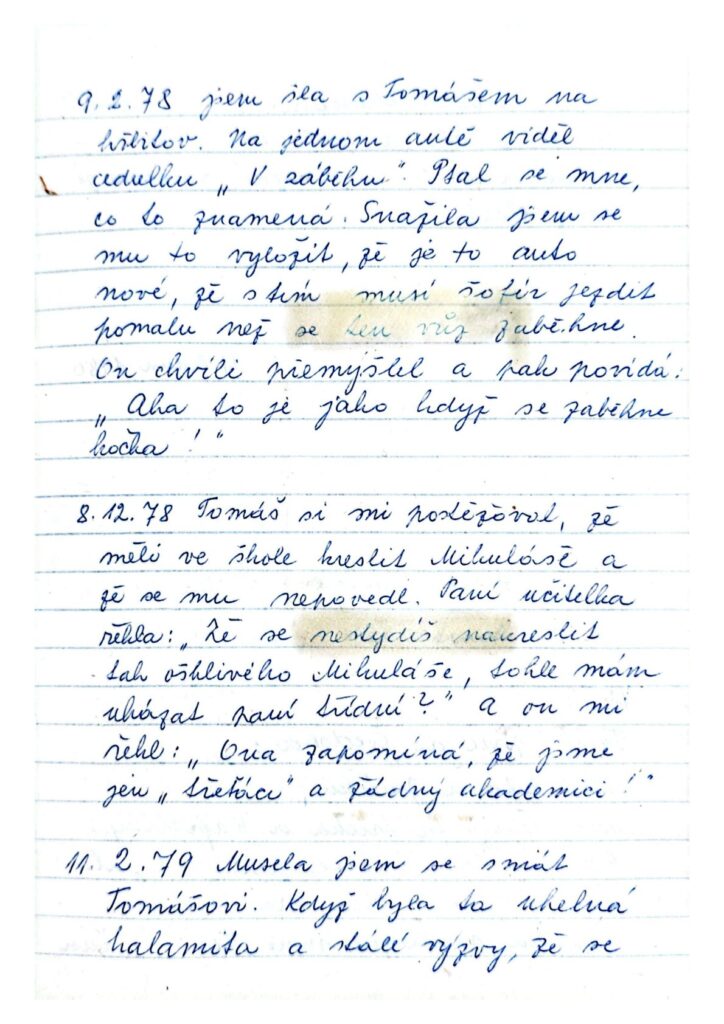 9.2.78 jsem šla s Tomášem na
hřbitov. Na jednom autě viděl
cedulku „V záběhu“. Ptal se mne,
co to znamená. Snažila jsem se
mu to vyložit, že je to auto
nové, že s tím musí šofér jezdit
pomalu než se ten vůz zaběhne.
On chvíli přemýšlel a pak povídá:
„Aha to je jako když se zaběhne
kočka!“
8.12.78 Tomáš si mi postěžoval, že
měli ve škole kreslit Mikuláše a
že se mu nepovedl. Paní učitelka
řekla: „Že se nestydíš nakreslit
tak ošklivého Mikuláše, tohle mám
ukázat paní třídní?“ A on mi
řekl: „Ona zapomíná, že jsme
jen „třeťáci“ a žádný akademici!“
11. 2. 79 Musela jsem se smát
Tomášovi. Když byla ta uhelná
kalamita a stálé výzvy, že se